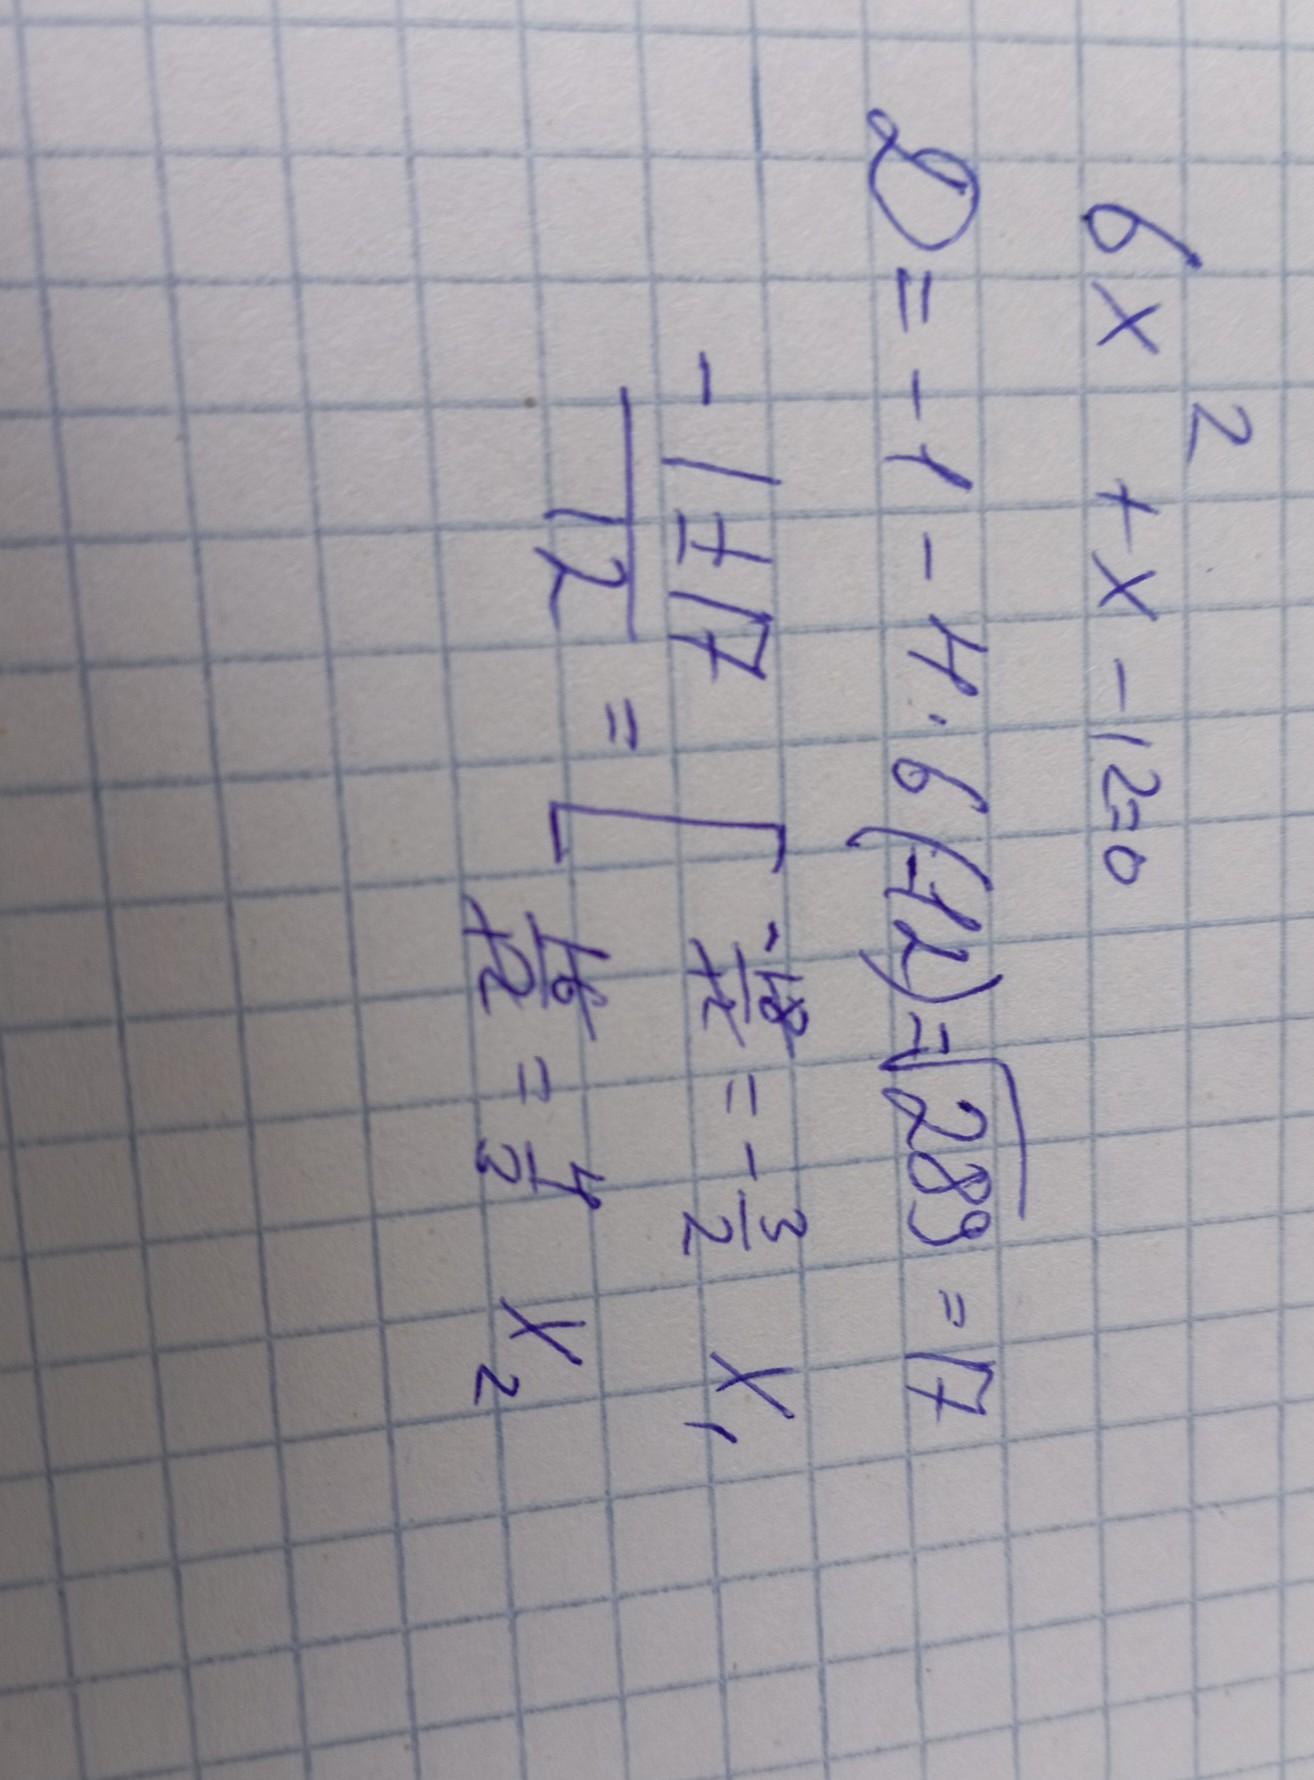 6x² + x - 12=0
D = -1 - 4·6(-12)=√289 = 17
(-1±17)/12 = [ -18/12 = -3/2 x₁
16/12 = 4/3 x₂